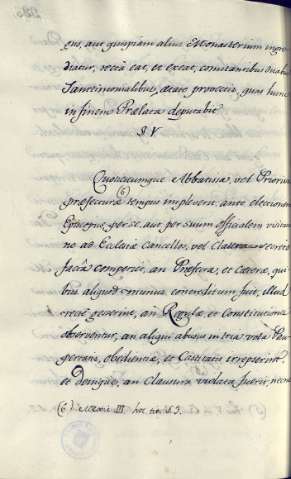 gus, aut quispiam alius Monasterium ingre
diatur, recta eat, et exeat, comitantibus duabus
Sanctimonialibus, ætate provectis, quas hunc
in finem Prælata deputabit
§. V
Quotiescumque Abbatissa, vel Priorissa
præfecturæ (6) tempus impleverit ante electionem
Episcopus per se, aut per suum officialem visitatio
ne ad Ecclesiæ Cancellos, vel Claustra
facta comperiet, an Præfecta, et ceteræ, qui
bus aliquod munus concreditum fuit, illud
recte gesserint, an Regulæ et Constitutiones
observentur, an aliqui abusus in tria vota Pau
pertatis, obedientiæ, et Castitatis irrepserint
et Denique, an Clausura violata fuerit, necne
(6) III hoc tit. § 3.